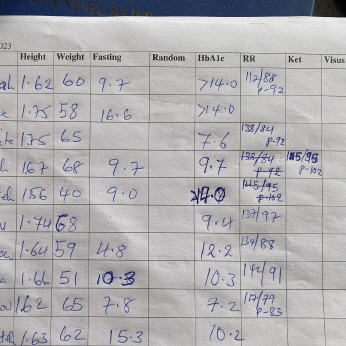 023
Height Weight Fasting Random HbA1c RR Ket Visus
1.62 60 9.7 >14.0 112/88 P-92
1.75 58 16.6 >14.0
1.75 65 7.6 138/84 P-92
1.67 68 9.7 9.7 138/84 P-92 145/95 P-102
156 40 9.0 >14.0 145/95 P-102
1.74 68 9.4 137/97
1.64 59 4.8 12.2 134/88
1.66 51 10.3 10.3 142/91
1.62 65 7.8 7.2 117/79 P-83
1.63 62 15.3 10.2